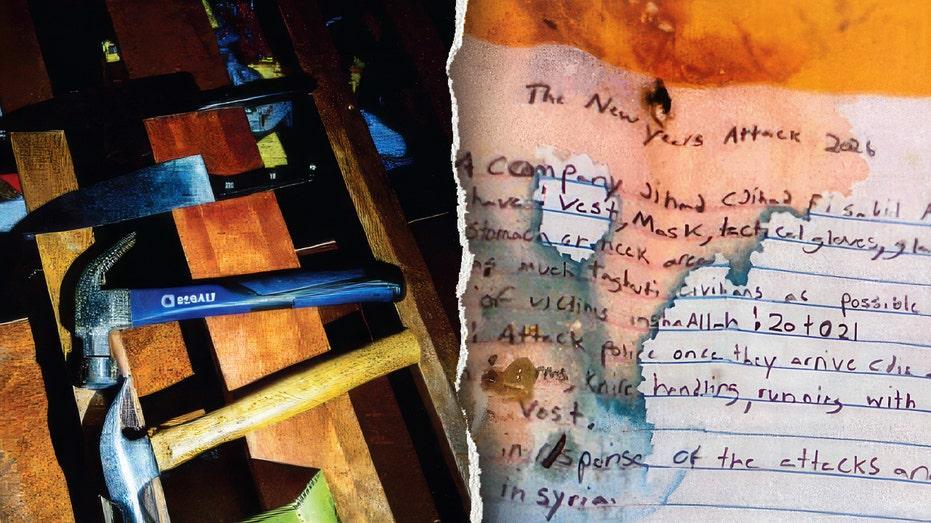 The New Years Attack 2026
company Jihad (Jihad Fi sabil
have: Vest, Mask, tactical gloves,
stomach or neck area
much taghuti civilians as possible
of victims inshaAllah: 20 to 21
Attack police once they arrive (die
knife handling, running with
Vest.
in response of the attacks
in syria.